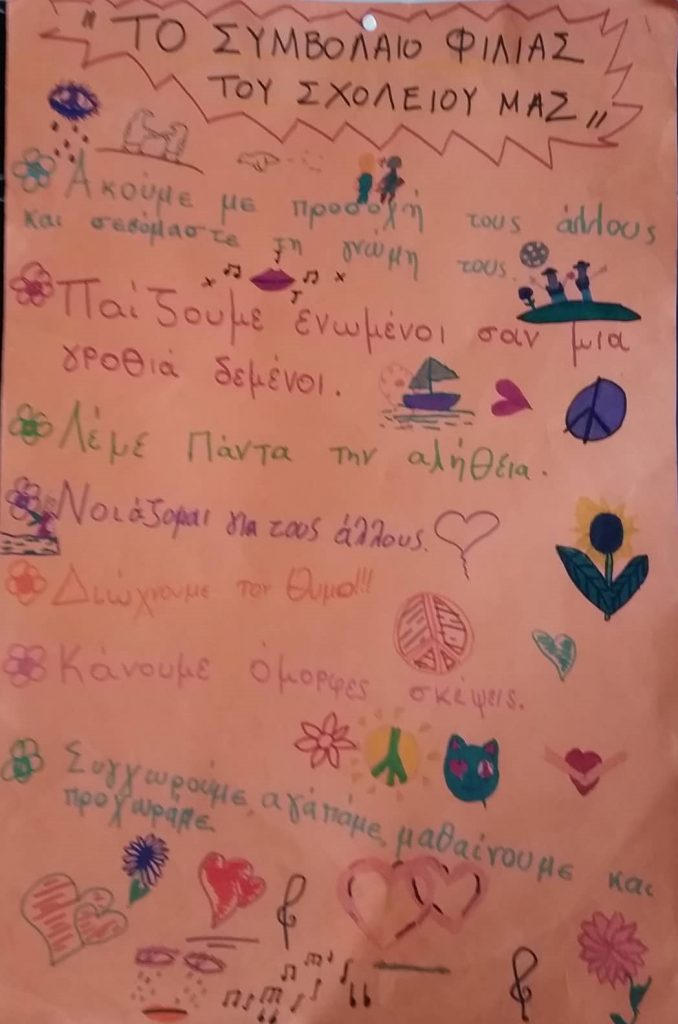 "ΤΟ ΣΥΜΒΟΛΑΙΟ ΦΙΛΙΑΣ
ΤΟΥ ΣΧΟΛΕΙΟΥ ΜΑΣ"
Ακούμε με προσοχή τους άλλους
και σεβόμαστε τη γνώμη τους.
Παίζουμε ενωμένοι σαν μια
γροθιά δεμένοι.
Λέμε Πάντα την αλήθεια.
Νοιάζομαι για τους άλλους.
Διώχνουμε τον θυμο!!!
Κάνουμε όμορφες σκέψεις.
Συγχωρούμε, αγαπάμε, μαθαίνουμε και
προχωράμε.